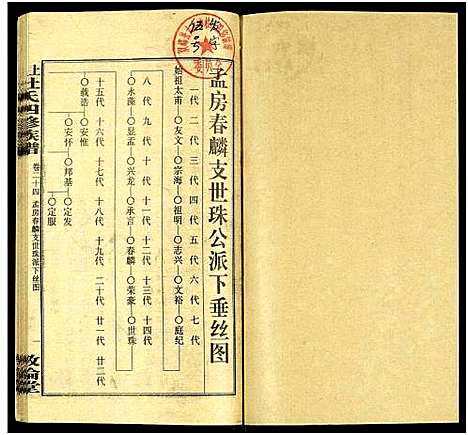 孟房春麟支世珠公派下垂丝图
一代 二代 三代 四代 五代 六代 七代
始祖太甫—〇友文—〇宗海—〇祖明—〇志兴—〇文裕—〇庭纪
八代 九代 十代 十一代 十二代 十三代 十四代
〇永藻—〇显孟—〇兴龙—〇承言—〇春麟—〇荣豪—〇世珠
十五代 十六代 十七代 十八代 十九代 二十代 廿一代 廿二代
〇载浩—〇安惟
〇安怀—〇邦基—〇定发
〇定服
杜氏四修族谱
卷二十四 孟房春麟支世珠派下丝图
一
敦伦堂